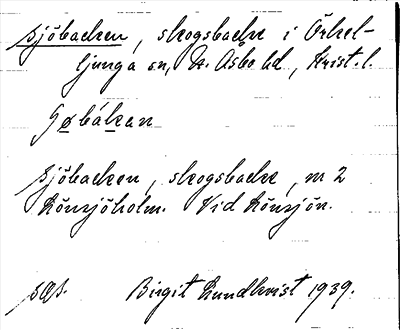 Sjöbacken, skogsbacke i Örkel-
ljunga sn, N. Åsbo hd, Krist. l.
Sjöbacken, skogsbacke, m 2
Rönsjöholm. Vid Rönsjön.
Birgit Lundkvist 1939.